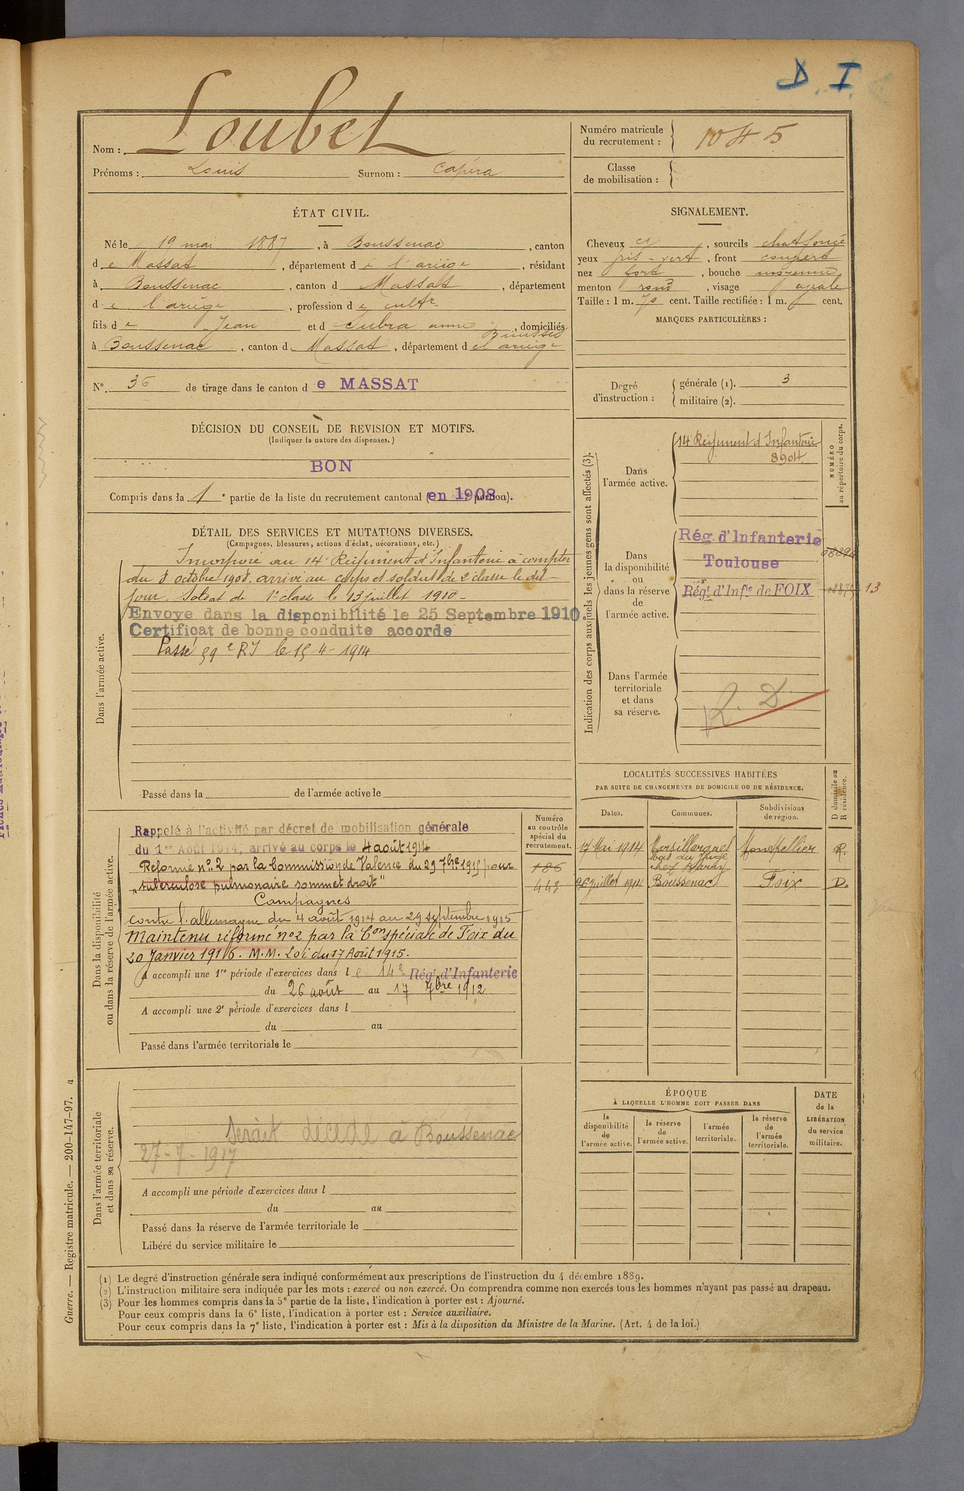 D. I.
Nom : Loubet
Prénoms : Louis Surnom : Capéra
Numéro matricule du recrutement : 1045
Classe de mobilisation :
ÉTAT CIVIL.
Né le 19 mai 1887, à Boussenac, canton
de Massat, département de l'ariège, résidant
à Boussenac, canton de Massat, département
de l'ariège, profession de cultr
fils de Jean et de anne, domiciliés
à Boussenac, canton de Massat, département de l'ariège
SIGNALEMENT.
Cheveux et, sourcils chat foncé
yeux gris-vert, front couvert
nez fort, bouche moyenne
menton rond, visage ovale
Taille : 1 m. 70 cent. Taille rectifiée : 1 m. cent.
MARQUES PARTICULIÈRES :
N° 36 de tirage dans le canton de MASSAT
Degré d'instruction : générale (1). 3
militaire (2).
DÉCISION DU CONSEIL DE REVISION ET MOTIFS.
(Indiquer la nature des dispenses.)
BON
Compris dans la 1e partie de la liste du recrutement cantonal (en 1908 portion).
DÉTAIL DES SERVICES ET MUTATIONS DIVERSES.
(Campagnes, blessures, actions d'éclat, décorations, etc.)
Dans l'armée active.
Incorporé au 14e Régiment d'Infanterie à compter
du 8 octobre 1908. arrivé au corps et soldat de 2e classe le dit
jour. Soldat de 1e classe le 13 juillet 1910 -
Envoyé dans la disponibilité le 25 Septembre 1910.
Certificat de bonne conduite accordé
Passé 59e RI le 15-4-1914
Passé dans la de l'armée active le
Indication des corps auxquels les jeunes gens sont affectés (3).
NUMÉRO au répertoire du corps.
Dans l'armée active.
14e Régiment d'Infanterie
8904
Dans la disponibilité ou dans la réserve de l'armée active.
Rég. d'Infanterie
Toulouse
Régt d'Infie de FOIX
Dans l'armée territoriale et dans sa réserve.
R. D.
LOCALITÉS SUCCESSIVES HABITÉES
PAR SUITE DE CHANGEMENTS DE DOMICILE OU DE RÉSIDENCE.
D domicile ou R résidence.
Dates. Communes. Subdivisions de région.
17 Mai 1914 Marsillargues Montpellier R.
26 juillet 1914 Boussenac Foix D.
Dans la disponibilité ou dans la réserve de l'armée active.
Numéro au contrôle spécial du recrutement.
186
443
Rappelé à l'activité par décret de mobilisation générale
du 1er Août 1914, arrivé au corps le 4 août 1914
Réformé n° 2 par la Commission de Valence du 29 7bre 1915 pour
"tuberculose pulmonaire sommet droit"
Campagnes
contre l'allemagne du 4 août 1914 au 29 septembre 1915
Maintenu réformé n°2 par la Con spéciale de Foix du
20 Janvier 1916. M.M. Loi du 17 Août 1915.
A accompli une 1re période d'exercices dans le 14e Rég. d'Infanterie
du 26 août au 17 7bre 1912
A accompli une 2e période d'exercices dans l
du au
Passé dans l'armée territoriale le
Dans l'armée territoriale et dans sa réserve.
Serait décédé à Boussenac
27-7-1917
A accompli une période d'exercices dans l
du au
Passé dans la réserve de l'armée territoriale le
Libéré du service militaire le
ÉPOQUE
À LAQUELLE L'HOMME DOIT PASSER DANS
la disponibilité de l'armée active.
la réserve de l'armée active.
l'armée territoriale.
la réserve de l'armée territoriale.
DATE de la LIBÉRATION du service militaire.
(1) Le degré d'instruction générale sera indiqué conformément aux prescriptions de l'instruction du 4 décembre 1889.
(2) L'instruction militaire sera indiquée par les mots : exercé ou non exercé. On comprendra comme non exercés tous les hommes n'ayant pas passé au drapeau.
(3) Pour les hommes compris dans la 5e partie de la liste, l'indication à porter est : Ajourné.
Pour ceux compris dans la 6e liste, l'indication à porter est : Service auxiliaire.
Pour ceux compris dans la 7e liste, l'indication à porter est : Mis à la disposition du Ministre de la Marine. (Art. 4 de la loi.)
Guerre. — Registre matricule. — 200-147-97. 4